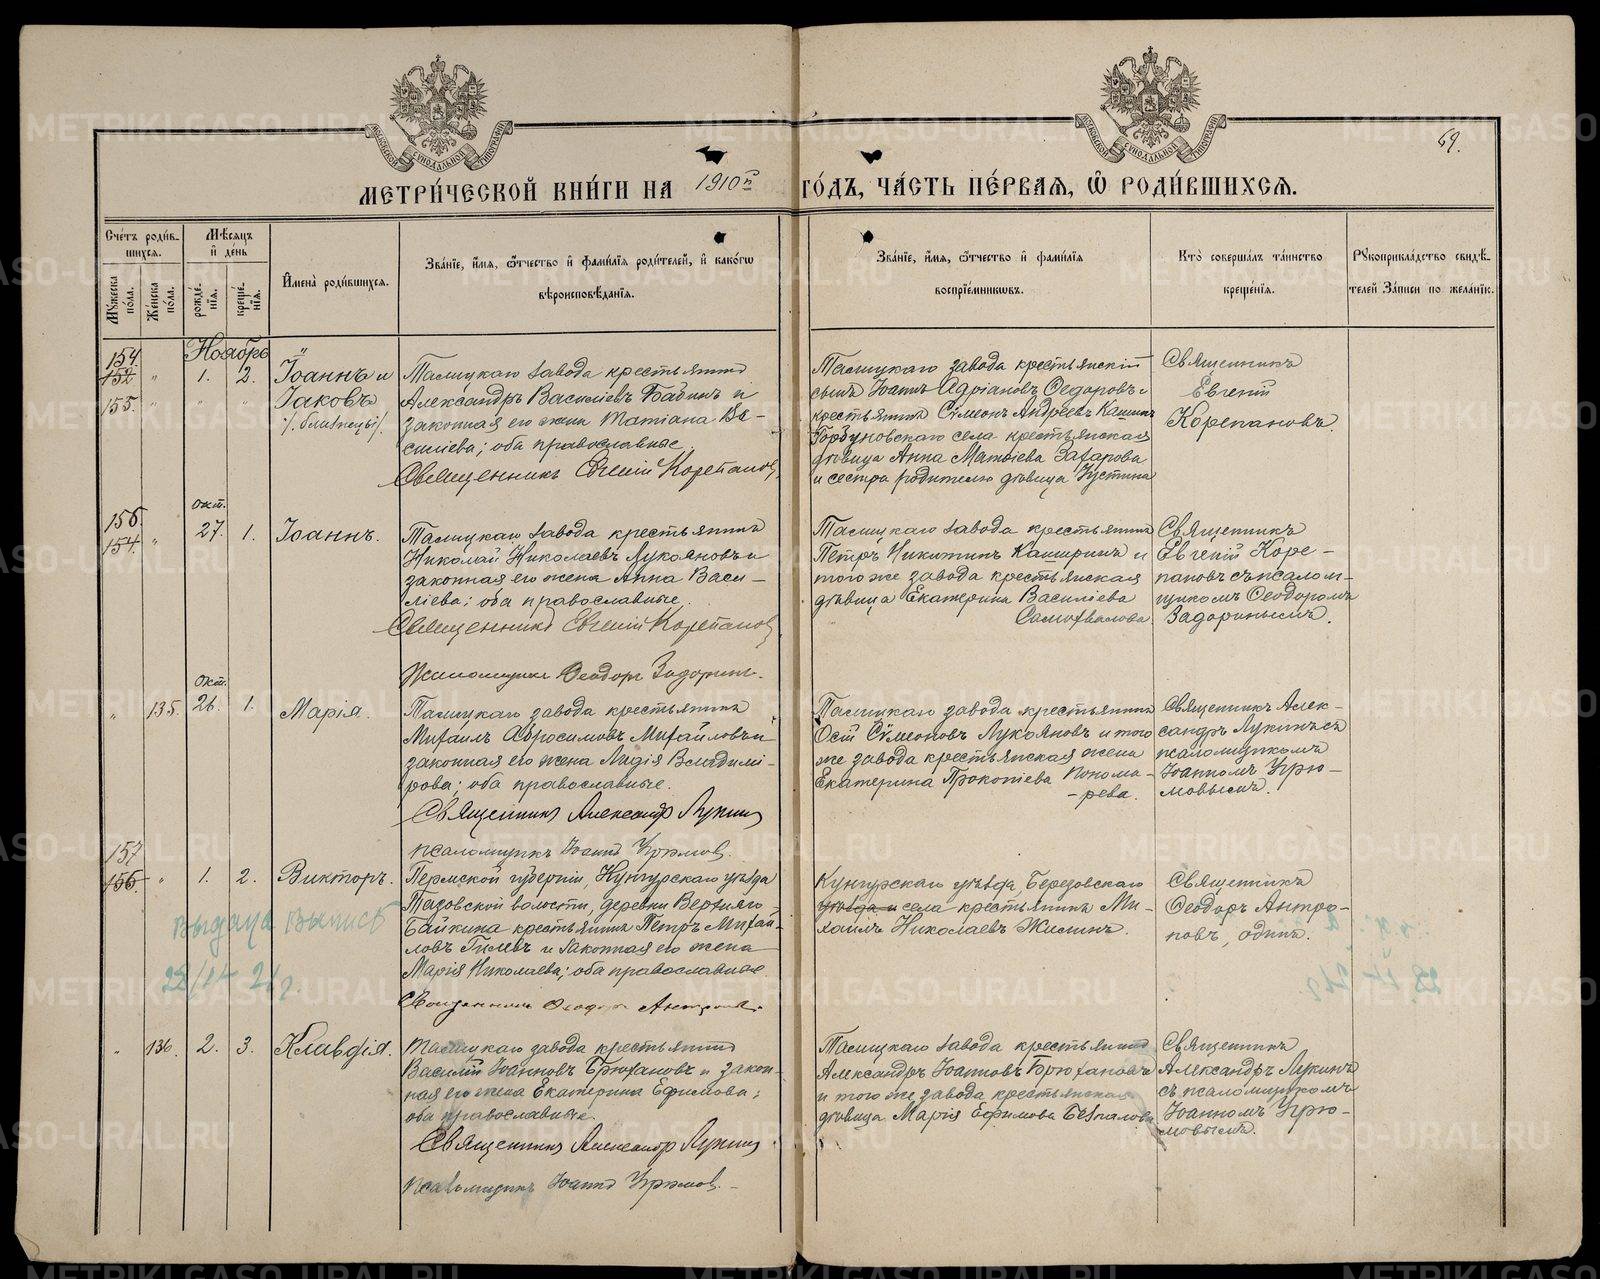 69.
МЕТРИ́ЧЕСКОЙ КНИ́ГИ НА 1910й ГО́ДЪ, ЧА́СТЬ ПЕ́РВАЯ, Ѡ РОДИ́ВШИХСЯ.
Сче́тъ роди́в-
шихся.
Мꙋ́жеска по́ла.
Же́нска по́ла.
Мѣ́сяцъ
и де́нь
рожде́нїя.
креще́нїя.
И́мена роди́вшихся.
Зва́нїе, и́мя, ѻ҆́тчество и фами́лїя роди́телей, и како́гѡ
вѣроисповѣ́данїя.
Зва́нїе, и́мя, ѻ҆́тчество и фами́лїя
воспрїе́мникѡвъ.
Кто̀ соверша́лъ та́инство
креще́нїя.
Рꙋкоприкла́дство свидѣ́-
телей за́писи по жела́нїю.
Ноябрь
154.
152 " 1. 2. Іоаннъ и
155. " " " Іаковъ
/. близнецы /.
Талицкаго завода крестьянинъ
Александръ Василіевъ Бабинъ и
законная его жена Татіана Ва-
силіева; оба православные.
Священникъ Евгеній Корепановъ
Талицкаго завода крестьянскій
сынъ Іоаннъ Адріановъ Ѳедоровъ и
крестьянинъ Сѵмеонъ Андреевъ Кашинъ
Горбуновскаго села крестьянская
дѣвица Анна Матвіева Захарова
и сестра родителю дѣвица Іустина
Священникъ
Евгеній
Корепановъ.
окт.
156.
154. " 27. 1. Іоаннъ.
Талицкаго завода крестьянинъ
Николай Николаевъ Лукояновъ и
законная его жена Анна Васи-
ліева; оба православные.
Священникъ Евгеній Корепановъ
Псаломщикъ Ѳеодоръ Задоринъ.
Талицкаго завода крестьянинъ
Петръ Никитинъ Каширинъ и
того же завода крестьянская
дѣвица Екатерина Василіева
Самохвалова.
Священникъ
Евгеній Коре-
пановъ съ псалом-
щикомъ Ѳеодоромъ
Задоринымъ.
окт.
" 135. 26. 1. Марія.
Талицкаго завода крестьянинъ
Михаилъ Абросимовъ Михайловъ и
законная его жена Лидія Владимі-
рова; оба православные.
Священникъ Александръ Лукинъ
псаломщикъ Іоаннъ Угрюмовъ.
Талицкаго завода крестьянинъ
Осій Сѵмеоновъ Лукояновъ и того
же завода крестьянская жена
Екатерина Прокопіева Понома-
-рева.
Священникъ Алек-
сандръ Лукинъ съ
псаломщикомъ
Іоанномъ Угрю-
мовымъ.
157
156. " 1. 2. Викторъ.
Пермской губерніи, Кунгурскаго уѣзда
Тазовской волости, деревни Верхняго-
Байкина крестьянинъ Петръ Михай-
ловъ Гилевъ и законная его жена
Марія Николаева; оба православные
Священникъ Ѳеодоръ Антроповъ.
Кунгурскаго уѣзда, Березовскаго
уѣзда и села крестьянинъ Ми-
хаилъ Николаевъ Жилинъ.
Священникъ
Ѳеодоръ Антро-
повъ, одинъ.
выдача выписъ
" 136. 2. 3. Клавдія.
Талицкаго завода крестьянинъ
Василій Іоанновъ Брюхановъ и закон-
ная его жена Екатерина Ефимова;
оба православные.
Священникъ Александръ Лукинъ
Псаломщикъ Іоаннъ Угрюмовъ.-
Талицкаго завода крестьянинъ
Александръ Іоанновъ Брюхановъ
и того же завода крестьянская
дѣвица Марія Ефимова Безпалова
Священникъ
Александръ Лукинъ
съ псаломщикомъ
Іоанномъ Угрю-
мовымъ.
METRIKI.GASO-URAL.RU